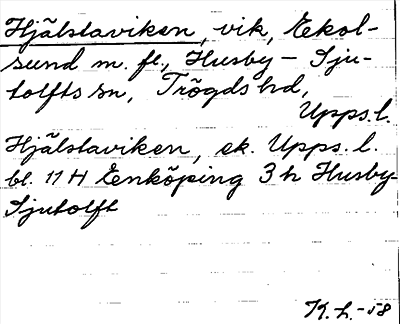 Hjälstaviken, vik, Ekol-
sund m. fl., Husby - Sju-
tolfts sn, Trögds hd,
Upps. l.
Hjälstaviken, ek. Upps. l.
bl. 11 H Enköping 3 h Husby-
Sjutolft
K. L. -58